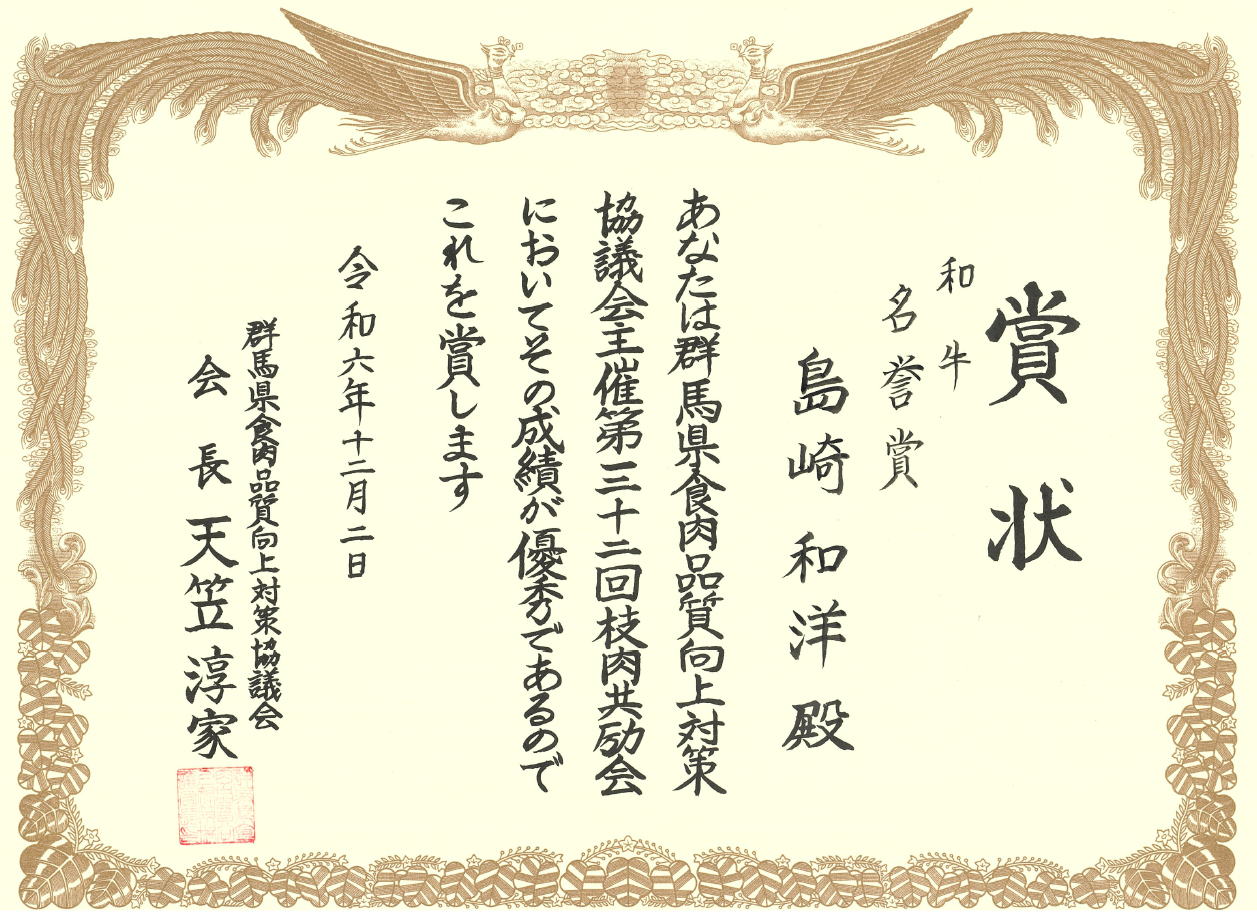 賞状
和牛
名誉賞
島崎和洋殿
あなたは群馬県食肉品質向上対策
協議会主催第三十二回枝肉共励会
においてその成績が優秀であるので
これを賞します
令和六年十二月二日
群馬県食肉品質向上対策協議会
会長 天笠淳家